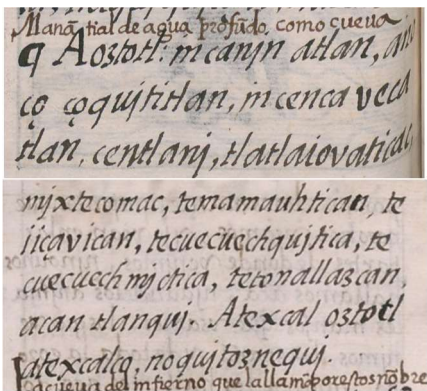 Manãtial de agua profũdo, como cueva
q Aoztotl: in canin atlan, anoço
ço çoqujtitlan, in cenca veca
tlan, centlanj, tlatlaiovaticac,
mjxtecomac, temamauhtican, te
iicavican, tecuecuechqujtica, te
cuecuechmjctica, tetonallazcan,
acan tlanquj. Atexcal oztotl
atexcalco, no qujtoznequj.
La cueva del infierno que la llamã por estos nõbre